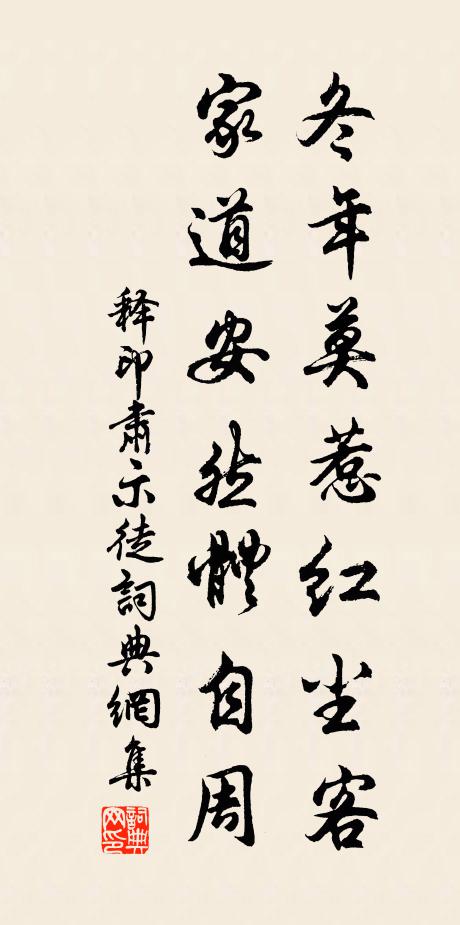 冬年莫惹红尘客
家道安然體自周
释印肃示徒詞典網集
詞典网印